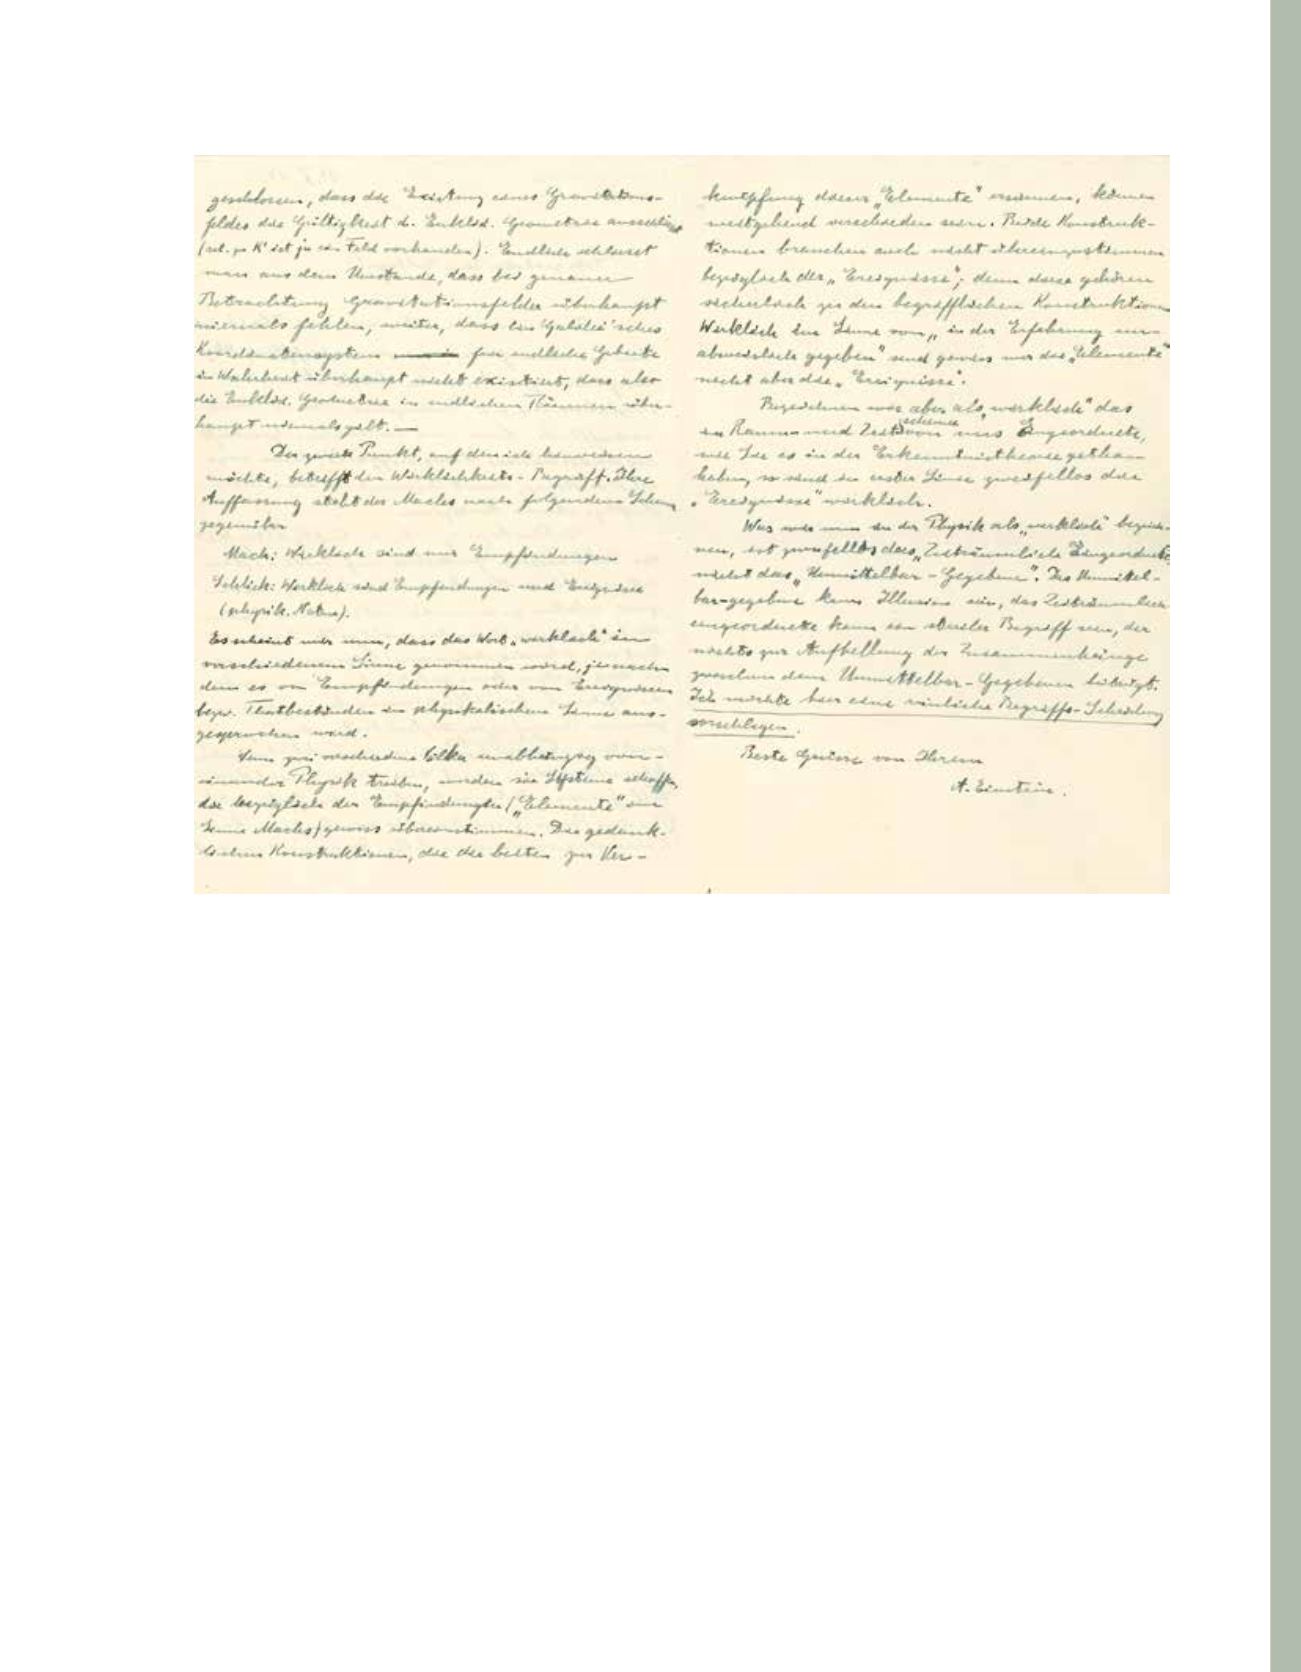 geschlossen, dass die Existenz eines Gravitations-
feldes die Gültigkeit d. Euklid. Geometrie ausschliesst
(rel. zu K' ist ja ein Feld vorhanden). Endlich schliesst
man aus dem Umstande, dass bei genauer
Betrachtung Gravitationsfelder überhaupt
niemals fehlen, weiter, dass ein Galilei'sches
Koordinatensystem für endliche Gebiete
in Wahrheit überhaupt nicht existiert, dass also
die Euklid. Geometrie in endlichen Räumen über-
haupt niemals gilt. —
Der zweite Punkt, auf den ich hinweisen
möchte, betrifft den Wirklichkeits-Begriff. Ihre
Auffassung steht der Machs nach folgendem Schema
gegenüber
Mach: Wirklich sind nur Empfindungen
Schlick: Wirklich sind Empfindungen und Ereignisse
(physik. Natur).
Es scheint mir nun, dass das Wort „wirklich" in
verschiedenem Sinne genommen wird, je nach
dem es von Empfindungen oder von Ereignissen
bezw. Thatbeständen in physikalischem Sinne aus-
gesprochen wird.
Wenn zwei verschiedene Völker unabhängig von-
einander Physik treiben, werden sie Systeme schaffen,
die bezüglich der Empfindungen („Elemente" im
Sinne Machs) gewiss übereinstimmen. Die gedank-
lichen Konstruktionen, die die beiden zur Ver-
knüpfung dieser „Elemente" ersinnen, können
weitgehend verschieden sein. Beide Konstruk-
tionen brauchen auch nicht übereinzustimmen
bezüglich der „Ereignisse"; denn diese gehören
sicherlich zu den begrifflichen Konstruktionen
Wirklich im Sinne von „in der Erfahrung un-
abweislich gegeben" sind gewiss nur die „Elemente"
nicht aber die „Ereignisse".
Bezeichnen wir aber als „wirklich" das
in Raum- und Zeitschema von uns Eingeordnete,
wie Sie es in der Erkenntnistheorie gethan
haben, so sind in erster Linie zweifellos die
„Ereignisse" wirklich.
Was wir nun in der Physik als „wirklich" bezeich-
nen, ist zweifellos das „Zeiträumlich Eingeordnete
nicht das „Unmittelbar-Gegebene". Das Unmittel-
bar-gegebene kann Illusion sein, das Zeiträumlich
eingeordnete kann ein steriler Begriff sein, der
nichts zur Aufhellung der Zusammenhänge
zwischen dem Unmittelbar-Gegebenen beiträgt.
Ich möchte hier eine reinliche Begriffs-Scheidung
vorschlagen.
Beste Grüsse von Ihrem
A. Einstein.